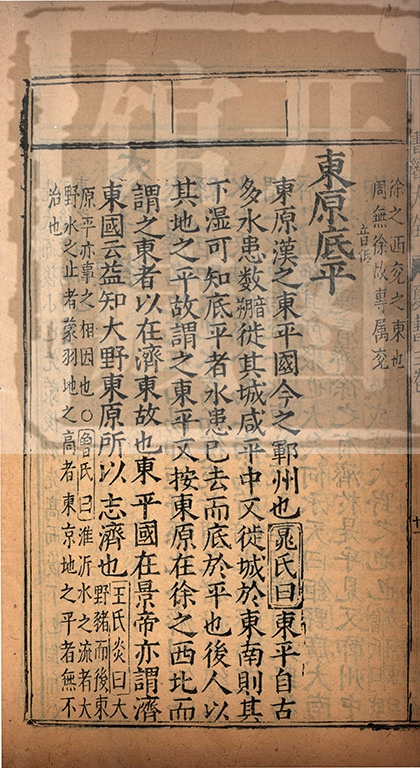 徐之西兗之東也
周無徐故專属兗
東原底平
音底
東原漢之東平國今之鄆州也晁氏曰東平自古
多水患數音朔徙其城咸平中又徙城於東南則其
下濕可知底平者水患已去而底於平也後人以
其地之平故謂之東平又按東原在徐之西北而
謂之東者以在濟東故也東平國在景帝亦謂濟
東國云益知大野東原所以志濟也王氏炎曰大
野豬而後東
原平亦事之相因也○魯氏曰淮沂水之流者大
野水之止者蒙羽地之高者東京地之平者無不
治也